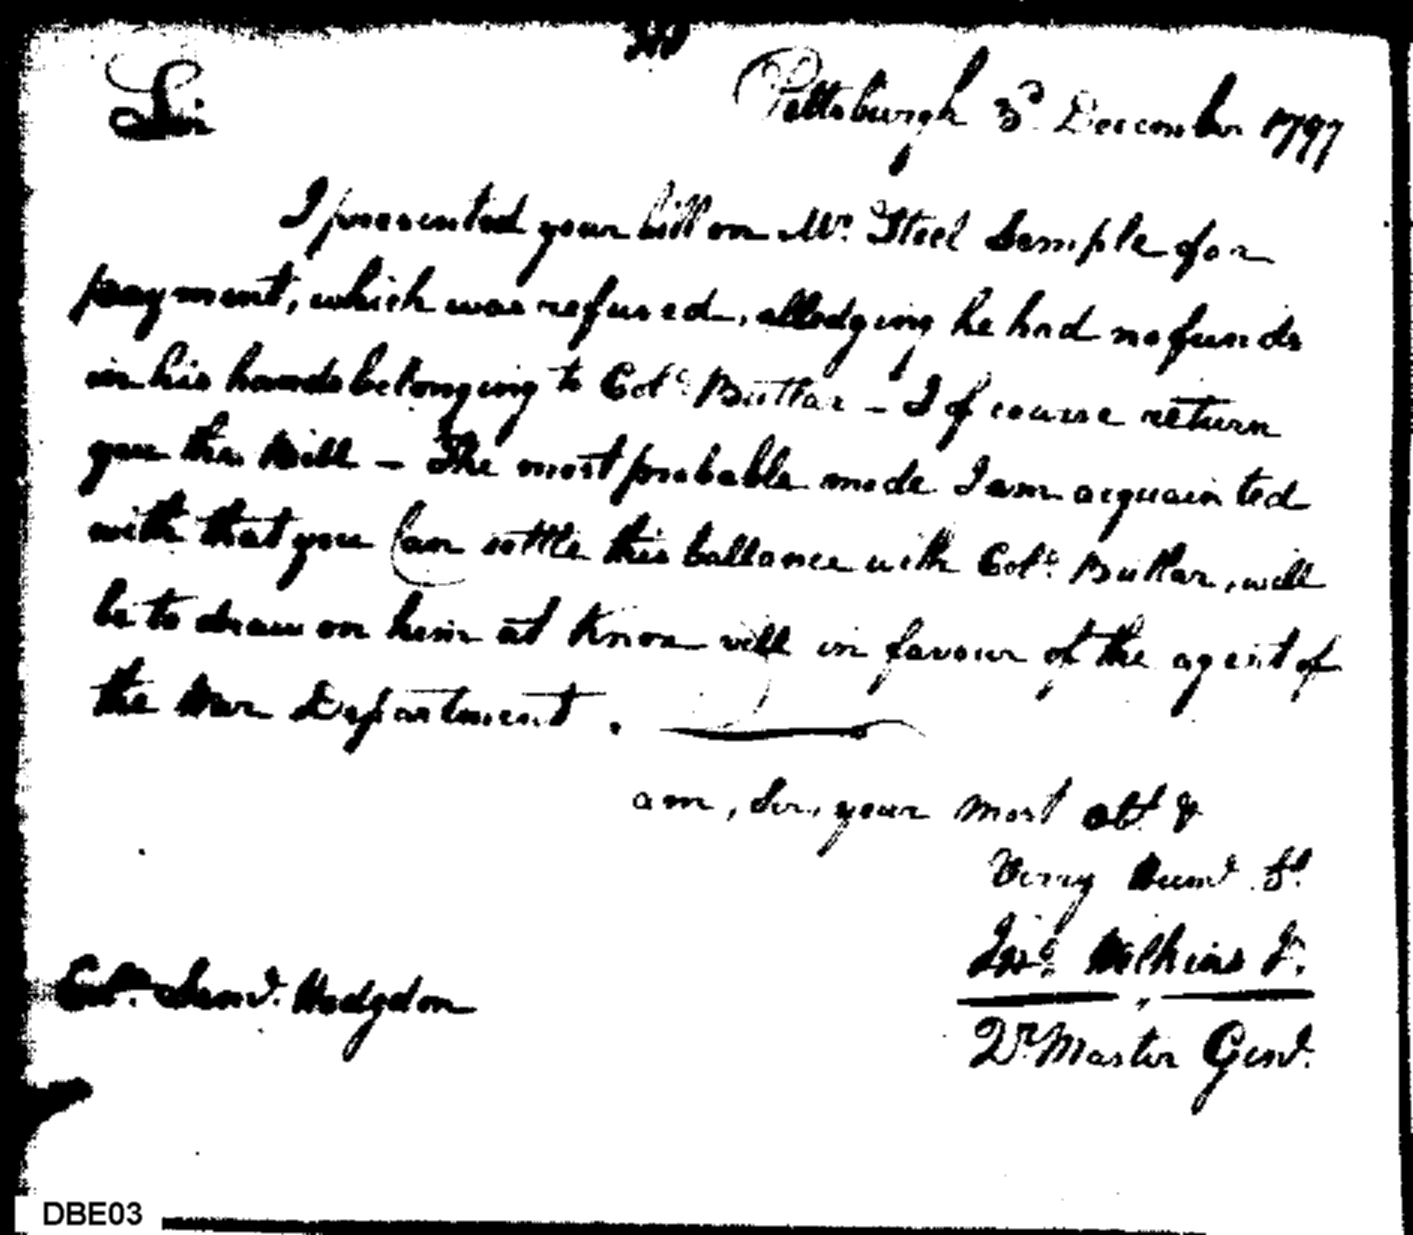 Pittsburgh 3d December 1797
Sir
I presented your bill on Mr. Steel Semple for
payment, which was refused, alledging he had no funds
in his hands belonging to Colo. Butlar - I of course return
you the Bill - The most probable mode I am acquainted
with that you Can settle this ballance with Colo. Butlar, will
be to draw on him at Knox ville in favour of the agent of
the War Department.
am, Sir, your most obt. &
Verry Humle. St.
Jno. Wilkins Jr.
Qr. Master Genl.
Col. Saml. Hodgdon
DBE03